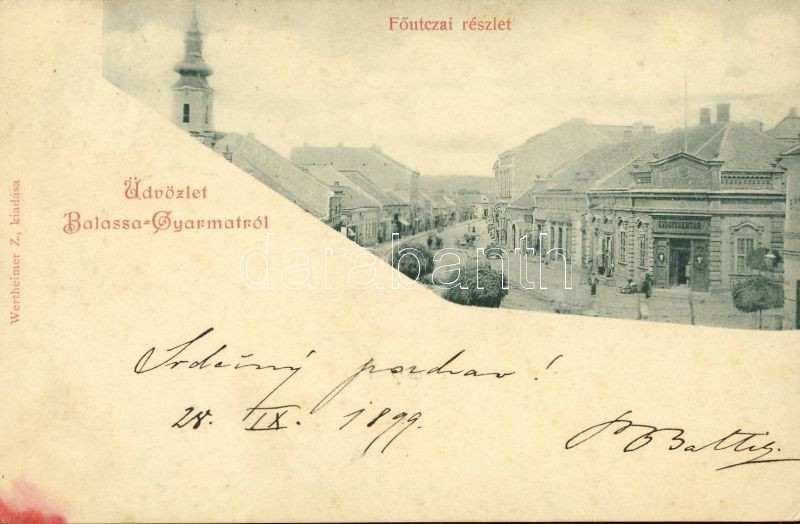 Főutczai részlet
GYÓGYSZERTÁR
Üdvözlet
Balassa-Gyarmatról
Wertheimer Z., kiadása
darabanth
Srdečný pozdrav!
28. IX. 1899